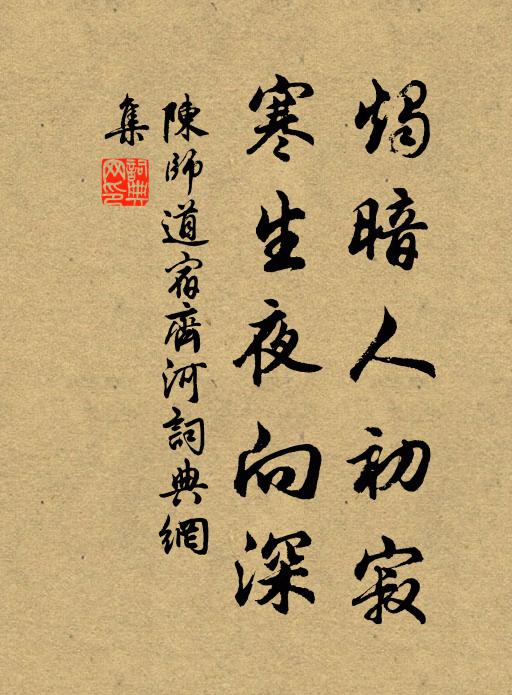 燭暗人初寂
寒生夜向深
陳師道宿齊河詞典網
集
詞典
网印